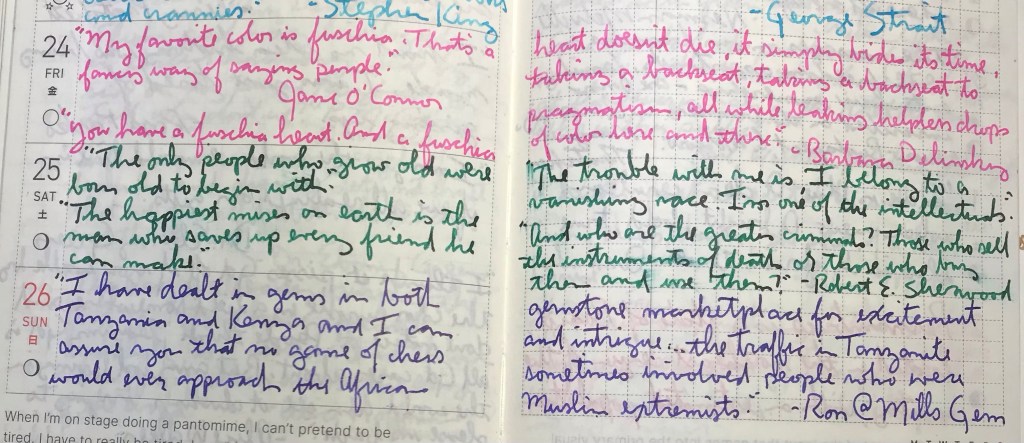 and crannies." -Stephen King
24
FRI
金
"My favorite color is fuschia. That's a
fancy way of saying purple."
Jane O'Connor
"You have a fuschia heart. And a fuschia
25
SAT
土
"The only people who grow old were
born old to begin with."
"The happiest miser on earth is the
man who saves up every friend he
can make."
26
SUN
日
"I have dealt in gems in both
Tanzania and Kenya and I can
assure you that no game of chess
would even approach the African
When I'm on stage doing a pantomime, I can't pretend to be
tired. I have to really be tired.
-George Strait
heart doesn't die, it simply bides its time,
taking a backseat, taking a backseat to
pragmatism, all while leaking helpless drops
of color here and there." -Barbara Delinsky
"The trouble with me is, I belong to a
vanishing race. I'm one of the intellectuals."
"And who are the greater criminals? Those who sell
the instruments of death, or those who buy
them and use them?" -Robert E. Sherwood
gemstone marketplace for excitement
and intrigue...the traffic in Tanzanite
sometimes involved people who were
Muslim extremists." -Ron @ Mills Gem